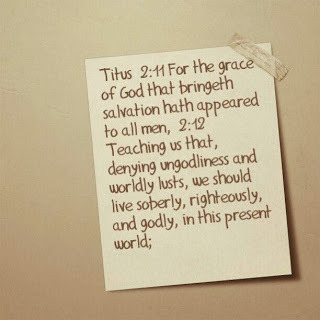 Titus 2:11 For the grace
of God that bringeth
salvation hath appeared
to all men, 2:12
Teaching us that,
denying ungodliness and
worldly lusts, we should
live soberly, righteously,
and godly, in this present
world;